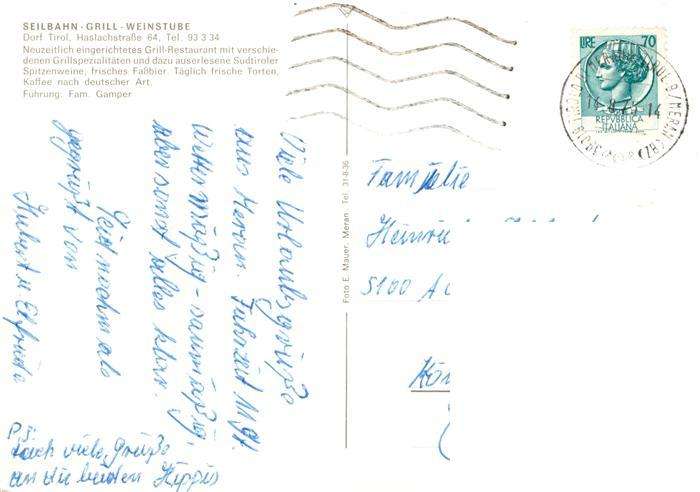 SEILBAHN - GRILL - WEINSTUBE
Dorf Tirol, Haslachstraße 64, Tel. 93 3 34
Neuzeitlich eingerichtetes Grill-Restaurant mit verschie-
denen Grillspezialitäten und dazu auserlesene Südtiroler
Spitzenweine, frisches Faßbier. Täglich frische Torten,
Kaffee nach deutscher Art.
Führung: Fam. Gamper
Viele Urlaubsgrüße
aus Meran. Fahrzeit 11 Std.
Wetter mäßig - saumäßig,
aber sonst alles klar.
Seid nochmals
gegrüßt von
Hubert u Elfriede
P.S.
Auch viele Grüße
an die beiden Hippis
Foto E. Mauer, Meran Tel. 31-8-36
LIRE 70
REPVBBLICA
ITALIANA
Familie
Heinri
5100 A
Kön